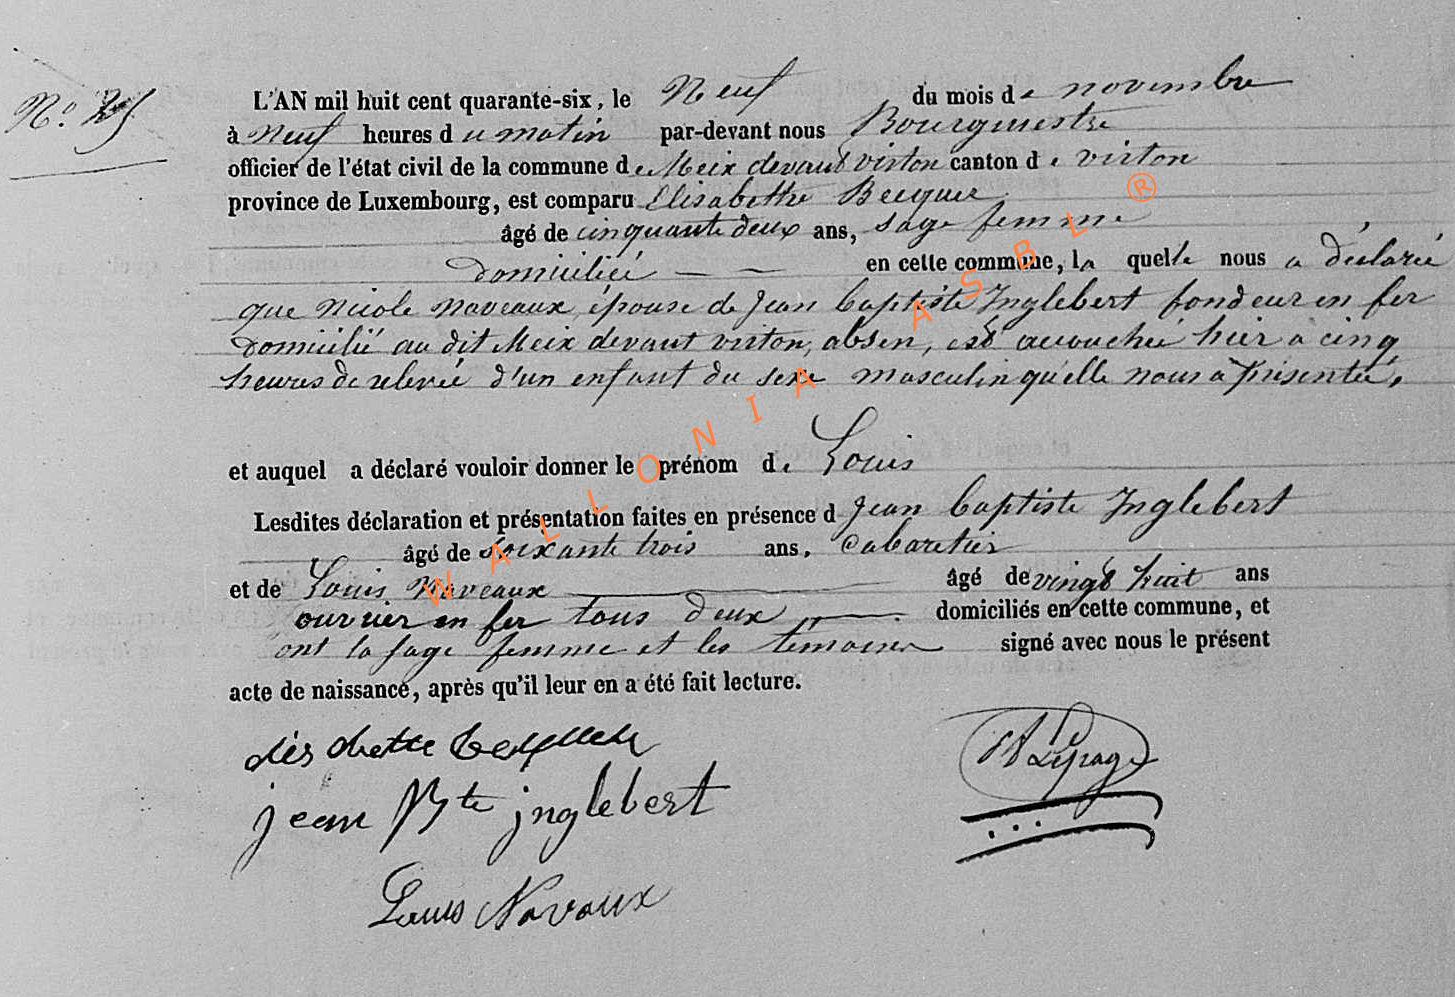 N.o 25
L'AN mil huit cent quarante-six, le Neuf du mois de novembre
à neuf heures du matin par-devant nous Bourgmestre
officier de l'état civil de la commune de Meix devant virton canton de virton
province de Luxembourg, est comparu Elisabethe Becquer
âgé de cinquante deux ans, sage femme
domiciliée en cette commune, la quelle nous a déclaré
que Nicole Naveaux, épouse de Jean baptiste Inglebert fondeur en fer
domicilié au dit Meix devant virton, absen, est accouchée hier a cinq
heures de relevée d'un enfant du sexe masculin qu'elle nous a présenté,
et auquel a déclaré vouloir donner le prénom de Louis
Lesdites déclaration et présentation faites en présence d Jean baptiste Inglebert
âgé de soixante trois ans, Cabaretier
et de Louis Naveaux âgé de vingt huit ans
ouvrier en fer tous deux domiciliés en cette commune, et
ont la sage femme et les témoins signé avec nous le présent
acte de naissance, après qu'il leur en a été fait lecture.
jean Bte jnglebert
Lepage
Louis Navaux
WALLONIA ASBL ®